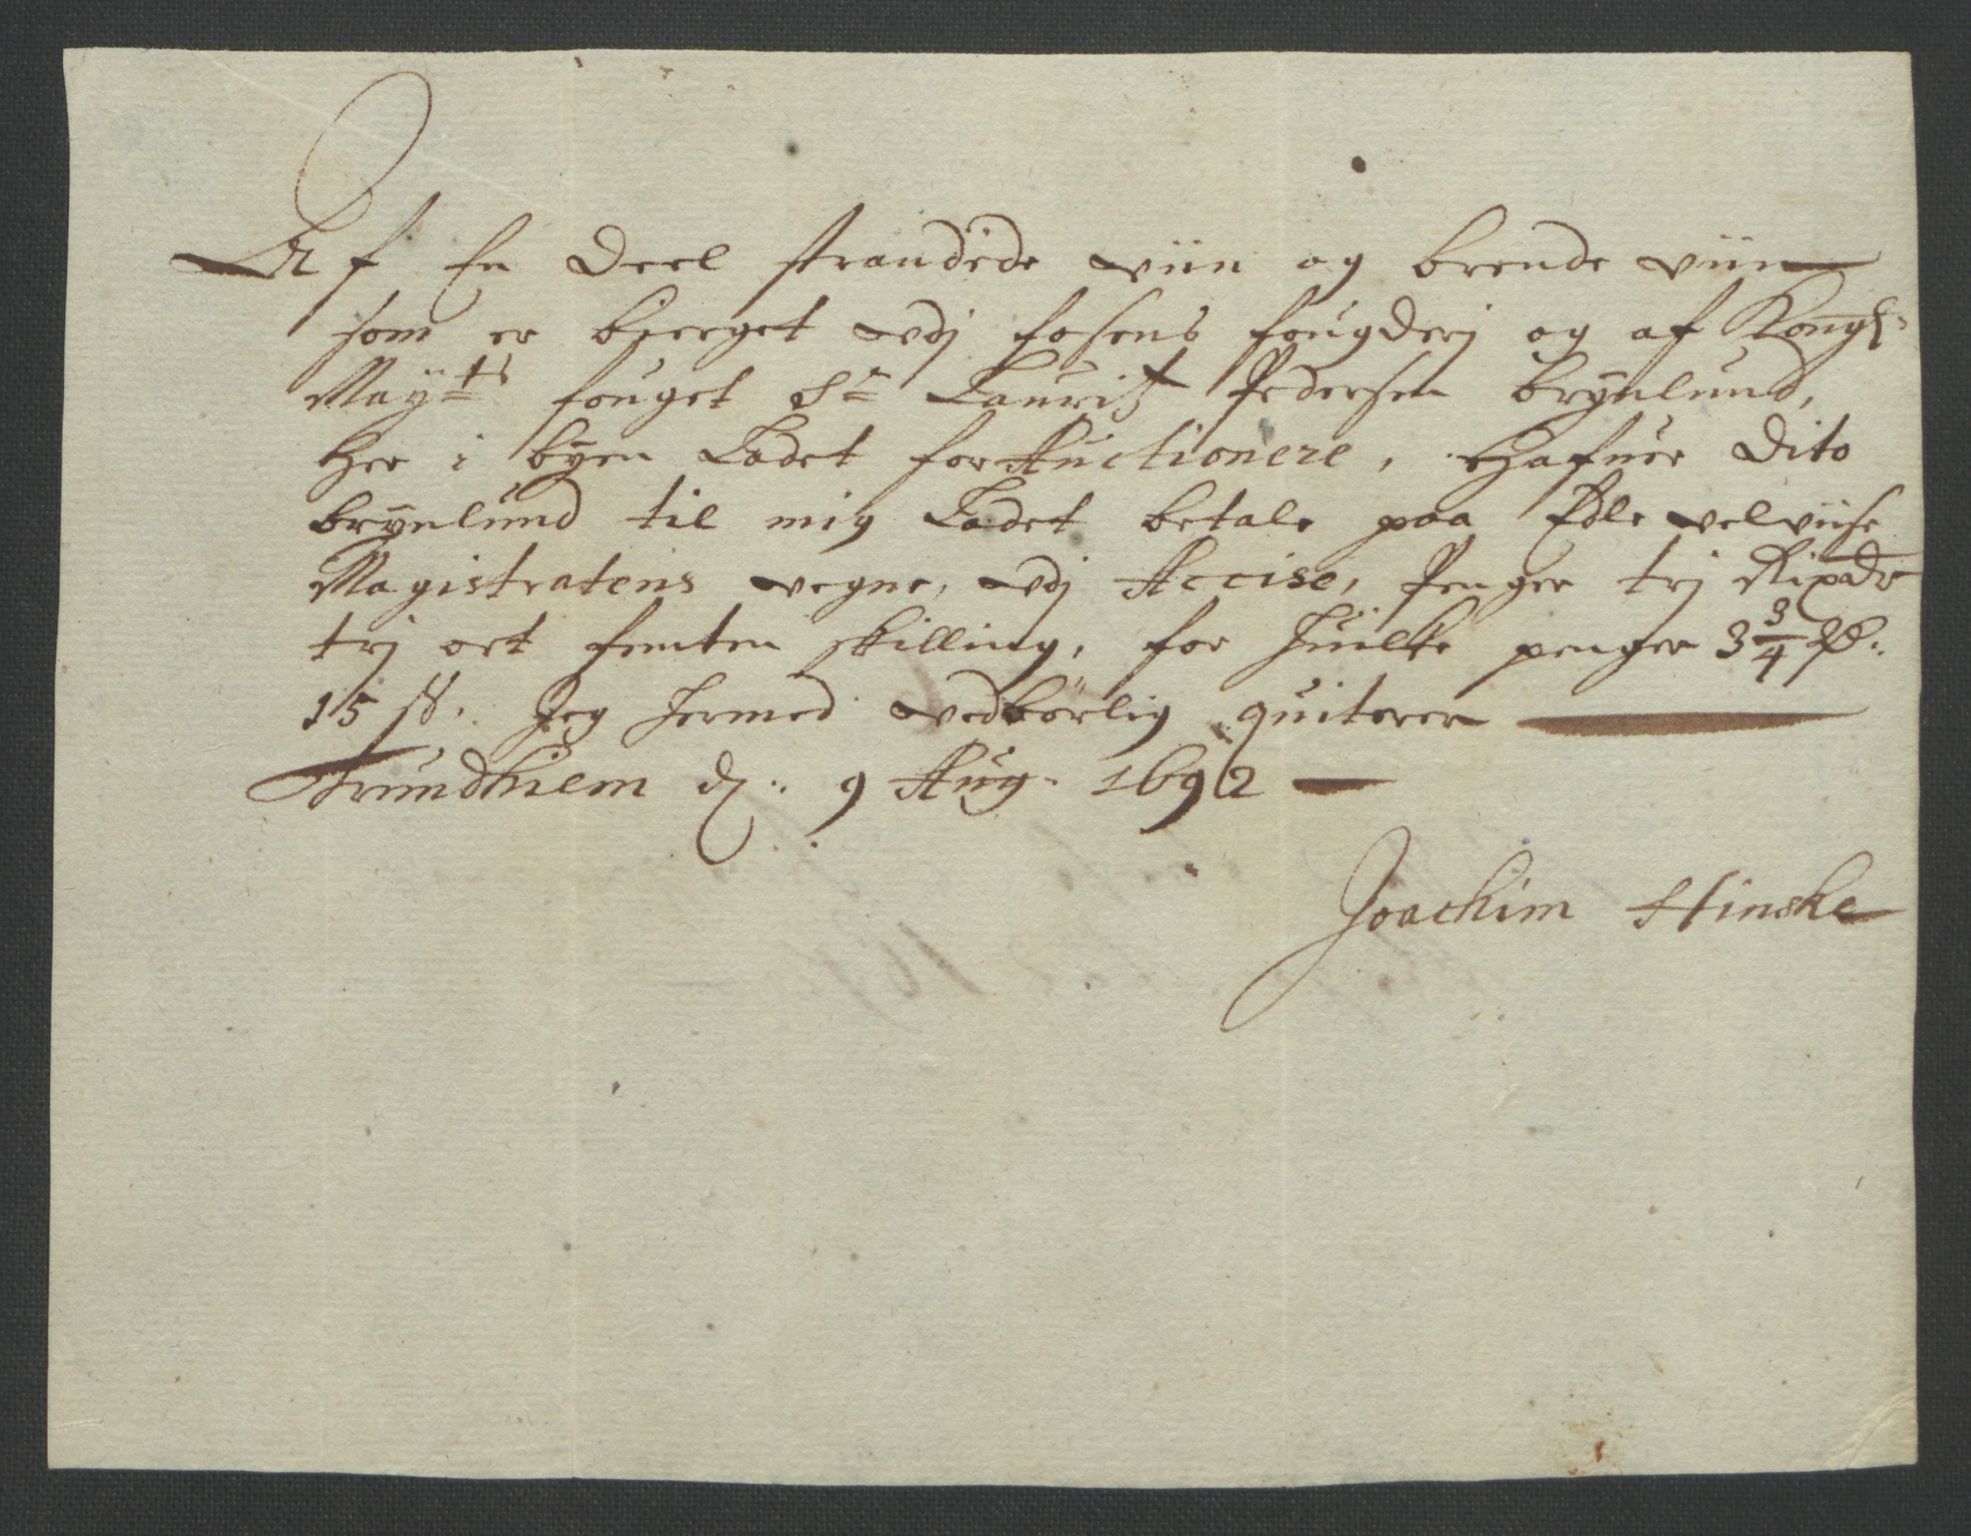 Af En Deel strandede viin og brende viin
som er bierget udj fosens fougderj og af Kongl:
May:ts fouget Sr Lauritz Pedersen Brynlund,
her i byen Ladet for Auctionere, Hafuer Dito
Brynlund til mig Ladet betale paa Edle velviise
Magistratens vegne, udj Accise, Penger trj Rixdr
trj ort femten skilling, for huilke penger 3 3/4 Rd:
15 ß. Jeg hermed vedbörlig quiterer
Trundhiem d: 9 Aug: 1692
Joachim Hinske